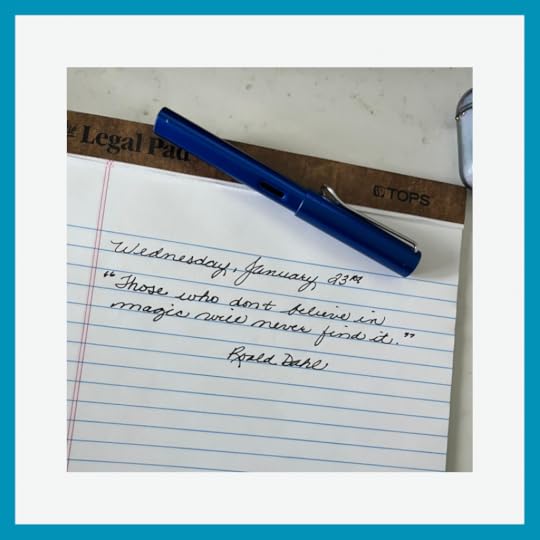 The Legal Pad
TOPS
Wednesday, January 23rd
"Those who don't believe in
magic will never find it."
Roald Dahl